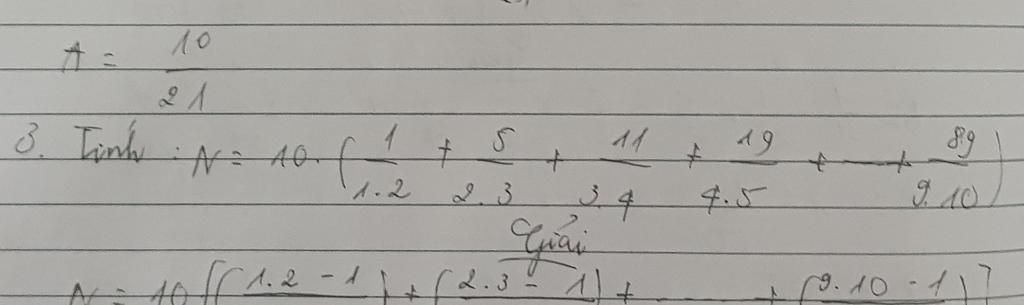 A = 10/21
3. Tính: N = 10. (1/1.2 + 5/2.3 + 11/3.4 + 19/4.5 + — + 89/9.10)
Giải
N = 10 [(1.2 - 1) + (2.3 - 1) + ... + (9.10 - 1)]